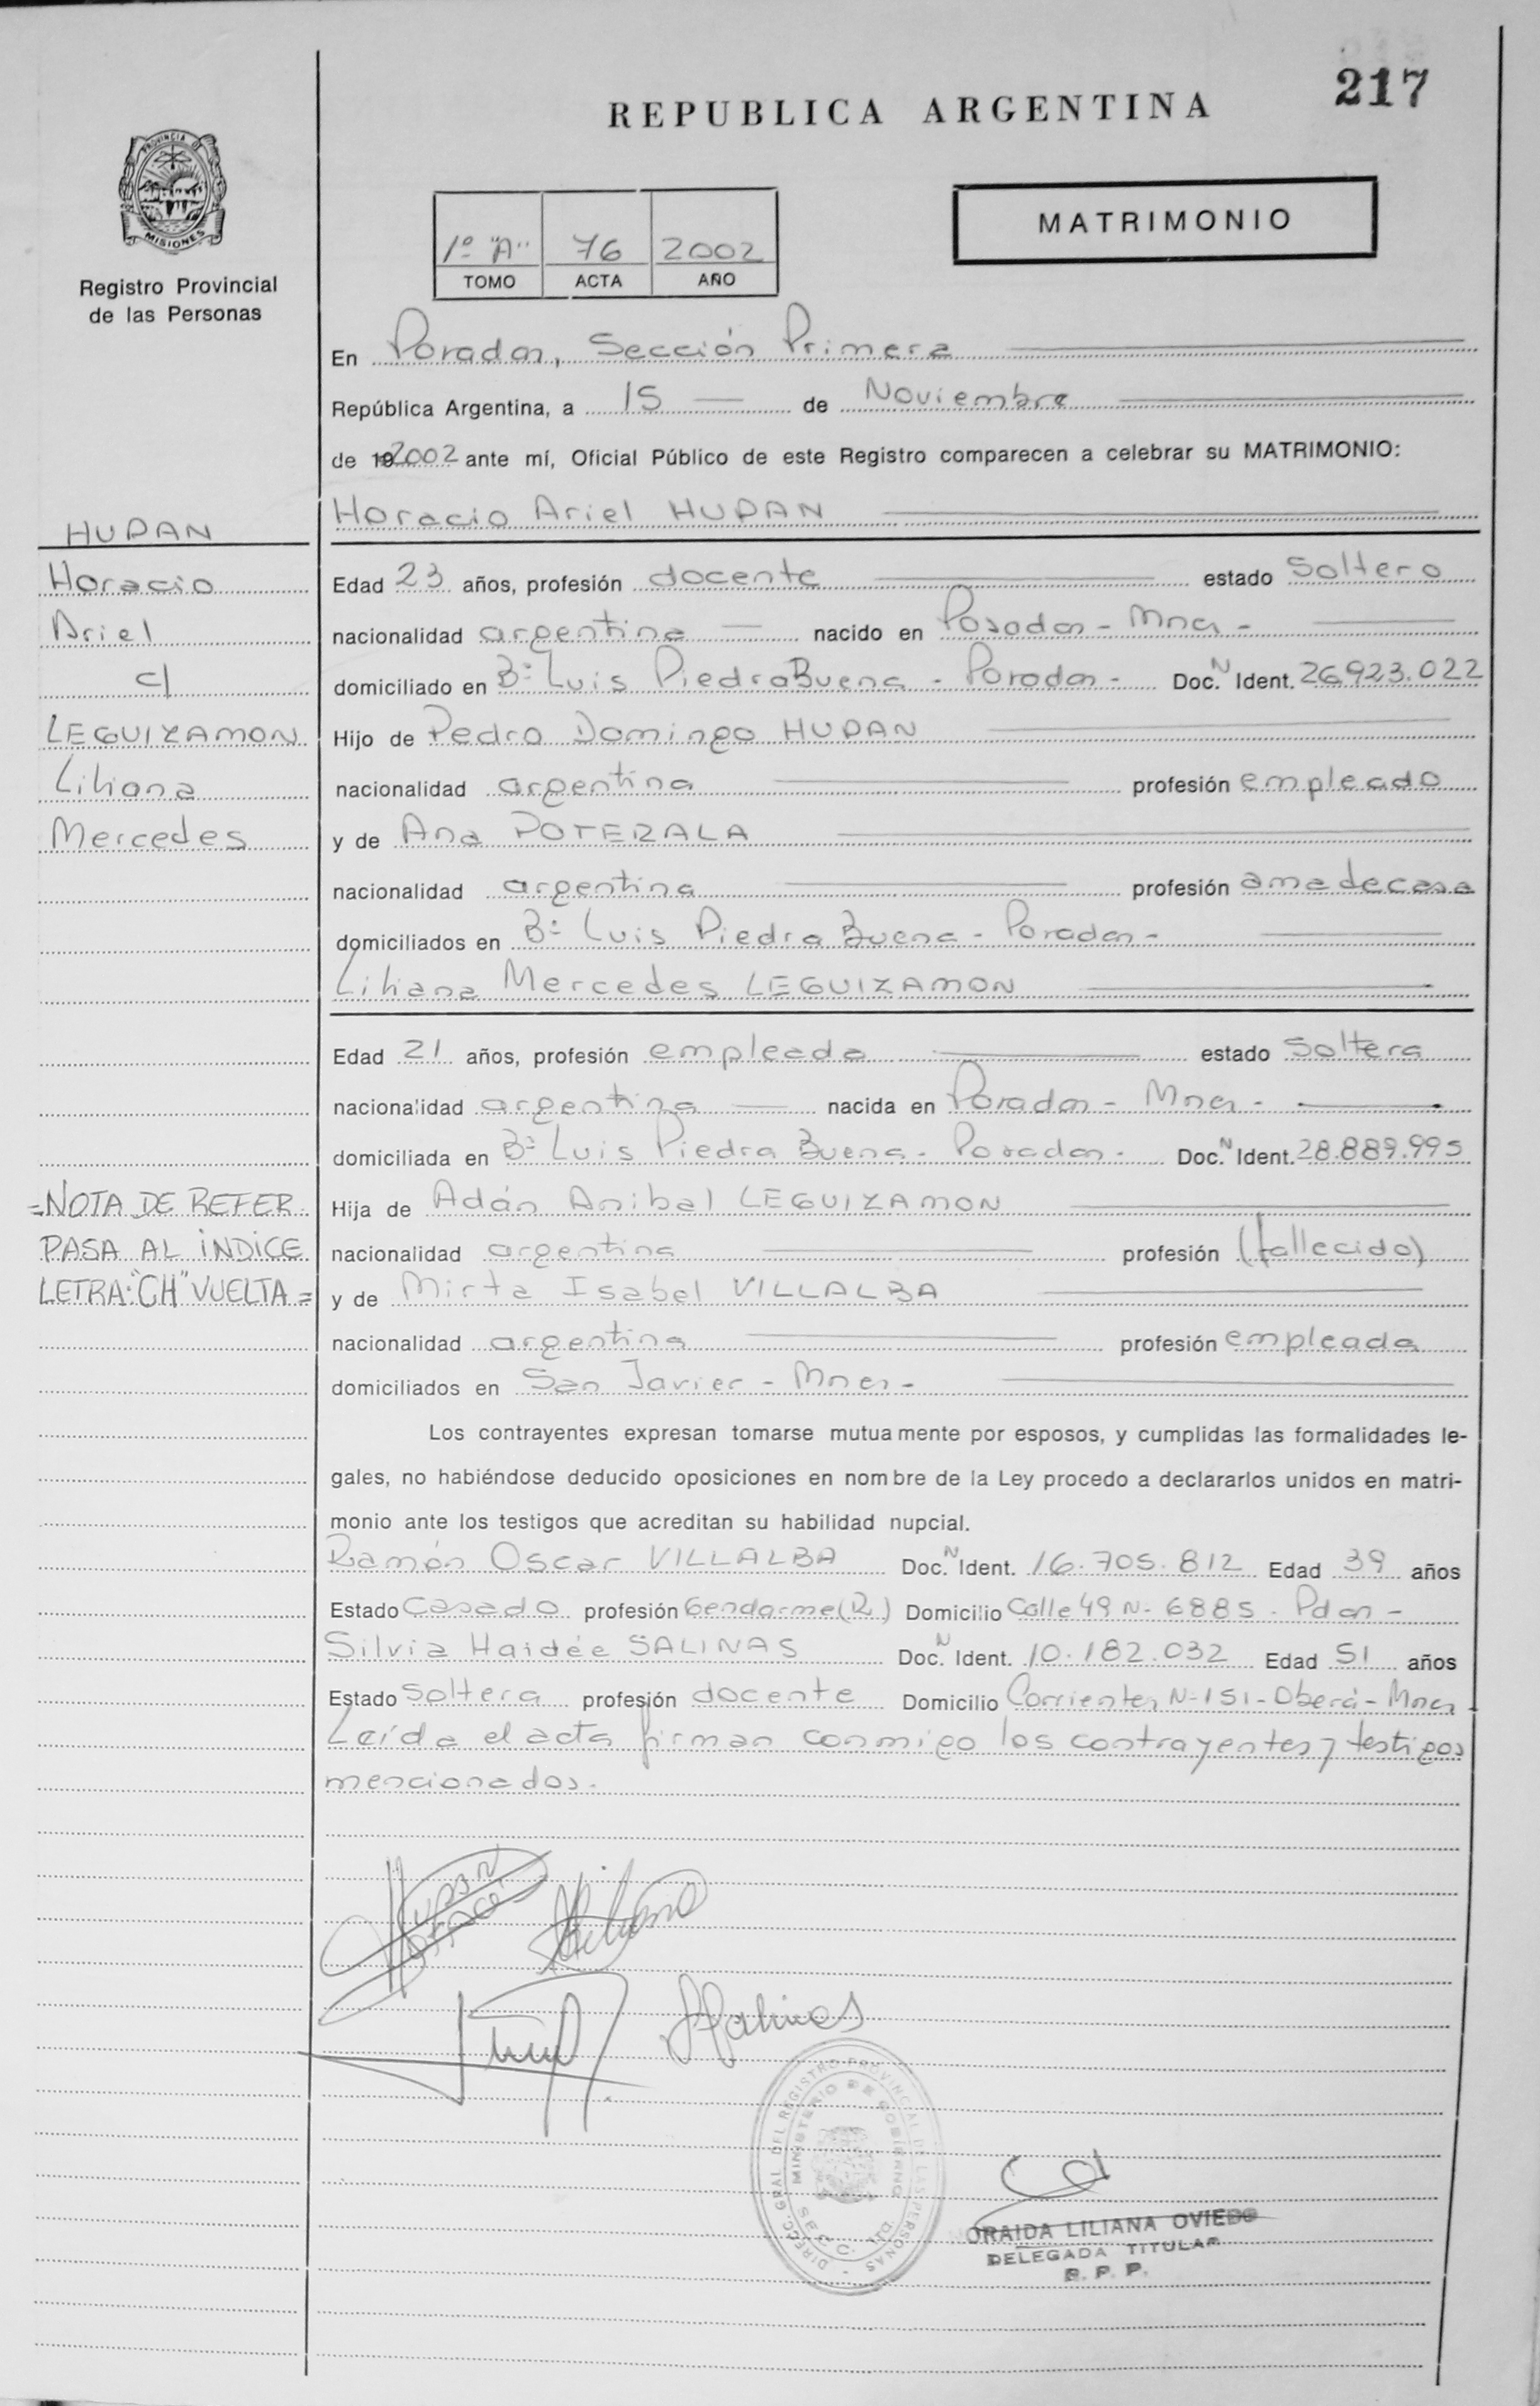 217
REPUBLICA ARGENTINA
PROVINCIA DE
MISIONES
Registro Provincial
de las Personas
1º "A" 76 2002
TOMO ACTA AÑO
MATRIMONIO
En Posadas, Sección Primera
República Argentina, a 15 de Noviembre
de 192002 ante mí, Oficial Público de este Registro comparecen a celebrar su MATRIMONIO:
Horacio Ariel HUPAN
HUPAN
Horacio
Ariel
c/
LEGUIZAMON
Liliana
Mercedes
Edad 23 años, profesión docente estado soltero
nacionalidad argentina nacido en Posadas - Mnes -
domiciliado en Bº Luis PiedraBuena - Posadas - Doc. N Ident. 26.923.022
Hijo de Pedro Domingo HUPAN
nacionalidad argentina profesión empleado
y de Ana POTERALA
nacionalidad argentina profesión ama de casa
domiciliados en Bº Luis Piedra Buena - Posadas -
Liliana Mercedes LEGUIZAMON
Edad 21 años, profesión empleada estado soltera
nacionalidad argentina nacida en Posadas - Mnes -
domiciliada en Bº Luis Piedra Buena - Posadas - Doc. N Ident. 28.889.995
Hija de Adán Anibal LEGUIZAMON
nacionalidad argentina profesión (fallecido)
y de Mirta Isabel VILLALBA
nacionalidad argentina profesión empleada
domiciliados en San Javier - Mnes -
=NOTA DE REFER.
PASA AL INDICE
LETRA: "CH" VUELTA =
Los contrayentes expresan tomarse mutuamente por esposos, y cumplidas las formalidades le-
gales, no habiéndose deducido oposiciones en nombre de la Ley procedo a declararlos unidos en matri-
monio ante los testigos que acreditan su habilidad nupcial.
Ramón Oscar VILLALBA Doc. N Ident. 16.705.812 Edad 39 años
Estado casado profesión Gendarme (R) Domicilio Calle 49 N- 6885 - Pdas -
Silvia Haidée SALINAS Doc. N Ident. 10.182.032 Edad 51 años
Estado soltera profesión docente Domicilio Corrientes N-151 - Oberá - Mnes
Leída el acta firman conmigo los contrayentes y testigos
mencionados.
HUPAN
HORACIO
Liliana
SHSalinas
DIREC. GRAL. DEL REGISTRO PROVINCIAL DE LAS PERSONAS
MINISTERIO DE GOBIERNO
ORAIDA LILIANA OVIEDO
DELEGADA TITULAR
R. P. P.